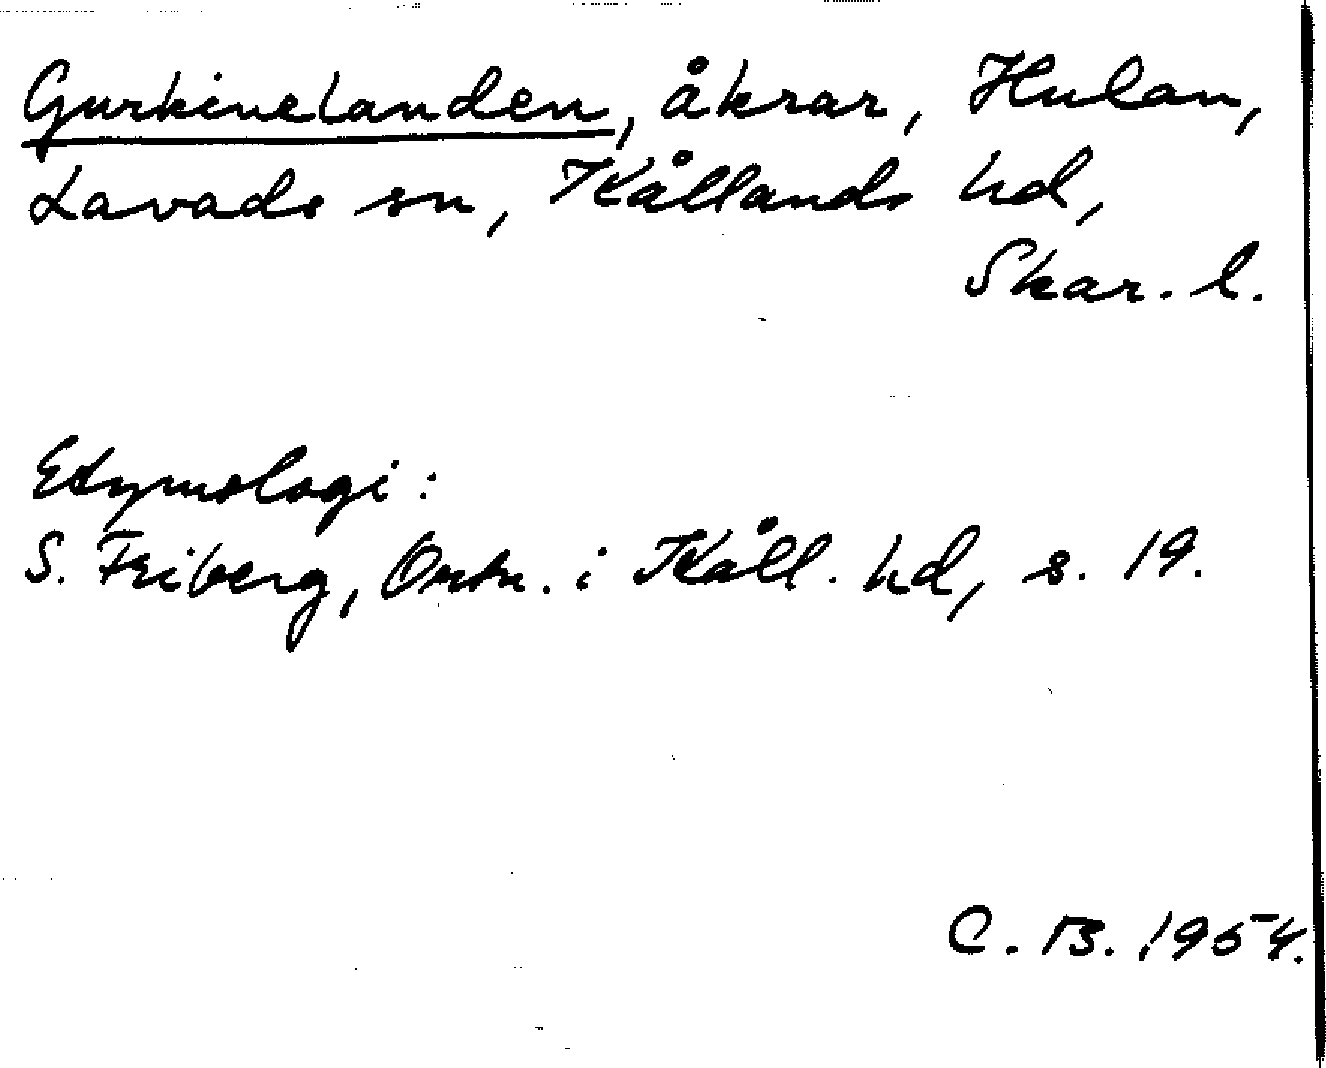 Gurkinelanden, åkrar, Hulan,
Lavads sn, Kållands hd,
Skar. l.
Etymologi:
S. Friberg, Ortn. i Kåll. hd, s. 19.
C. B. 1954.